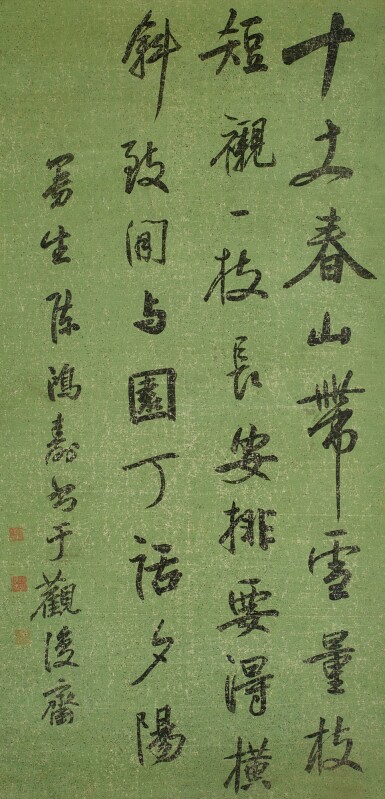 十丈春山帶雪量枝
短襯一枝長安排要得橫
斜致閒与園丁話夕陽
曼生陳鴻壽書于觀齋